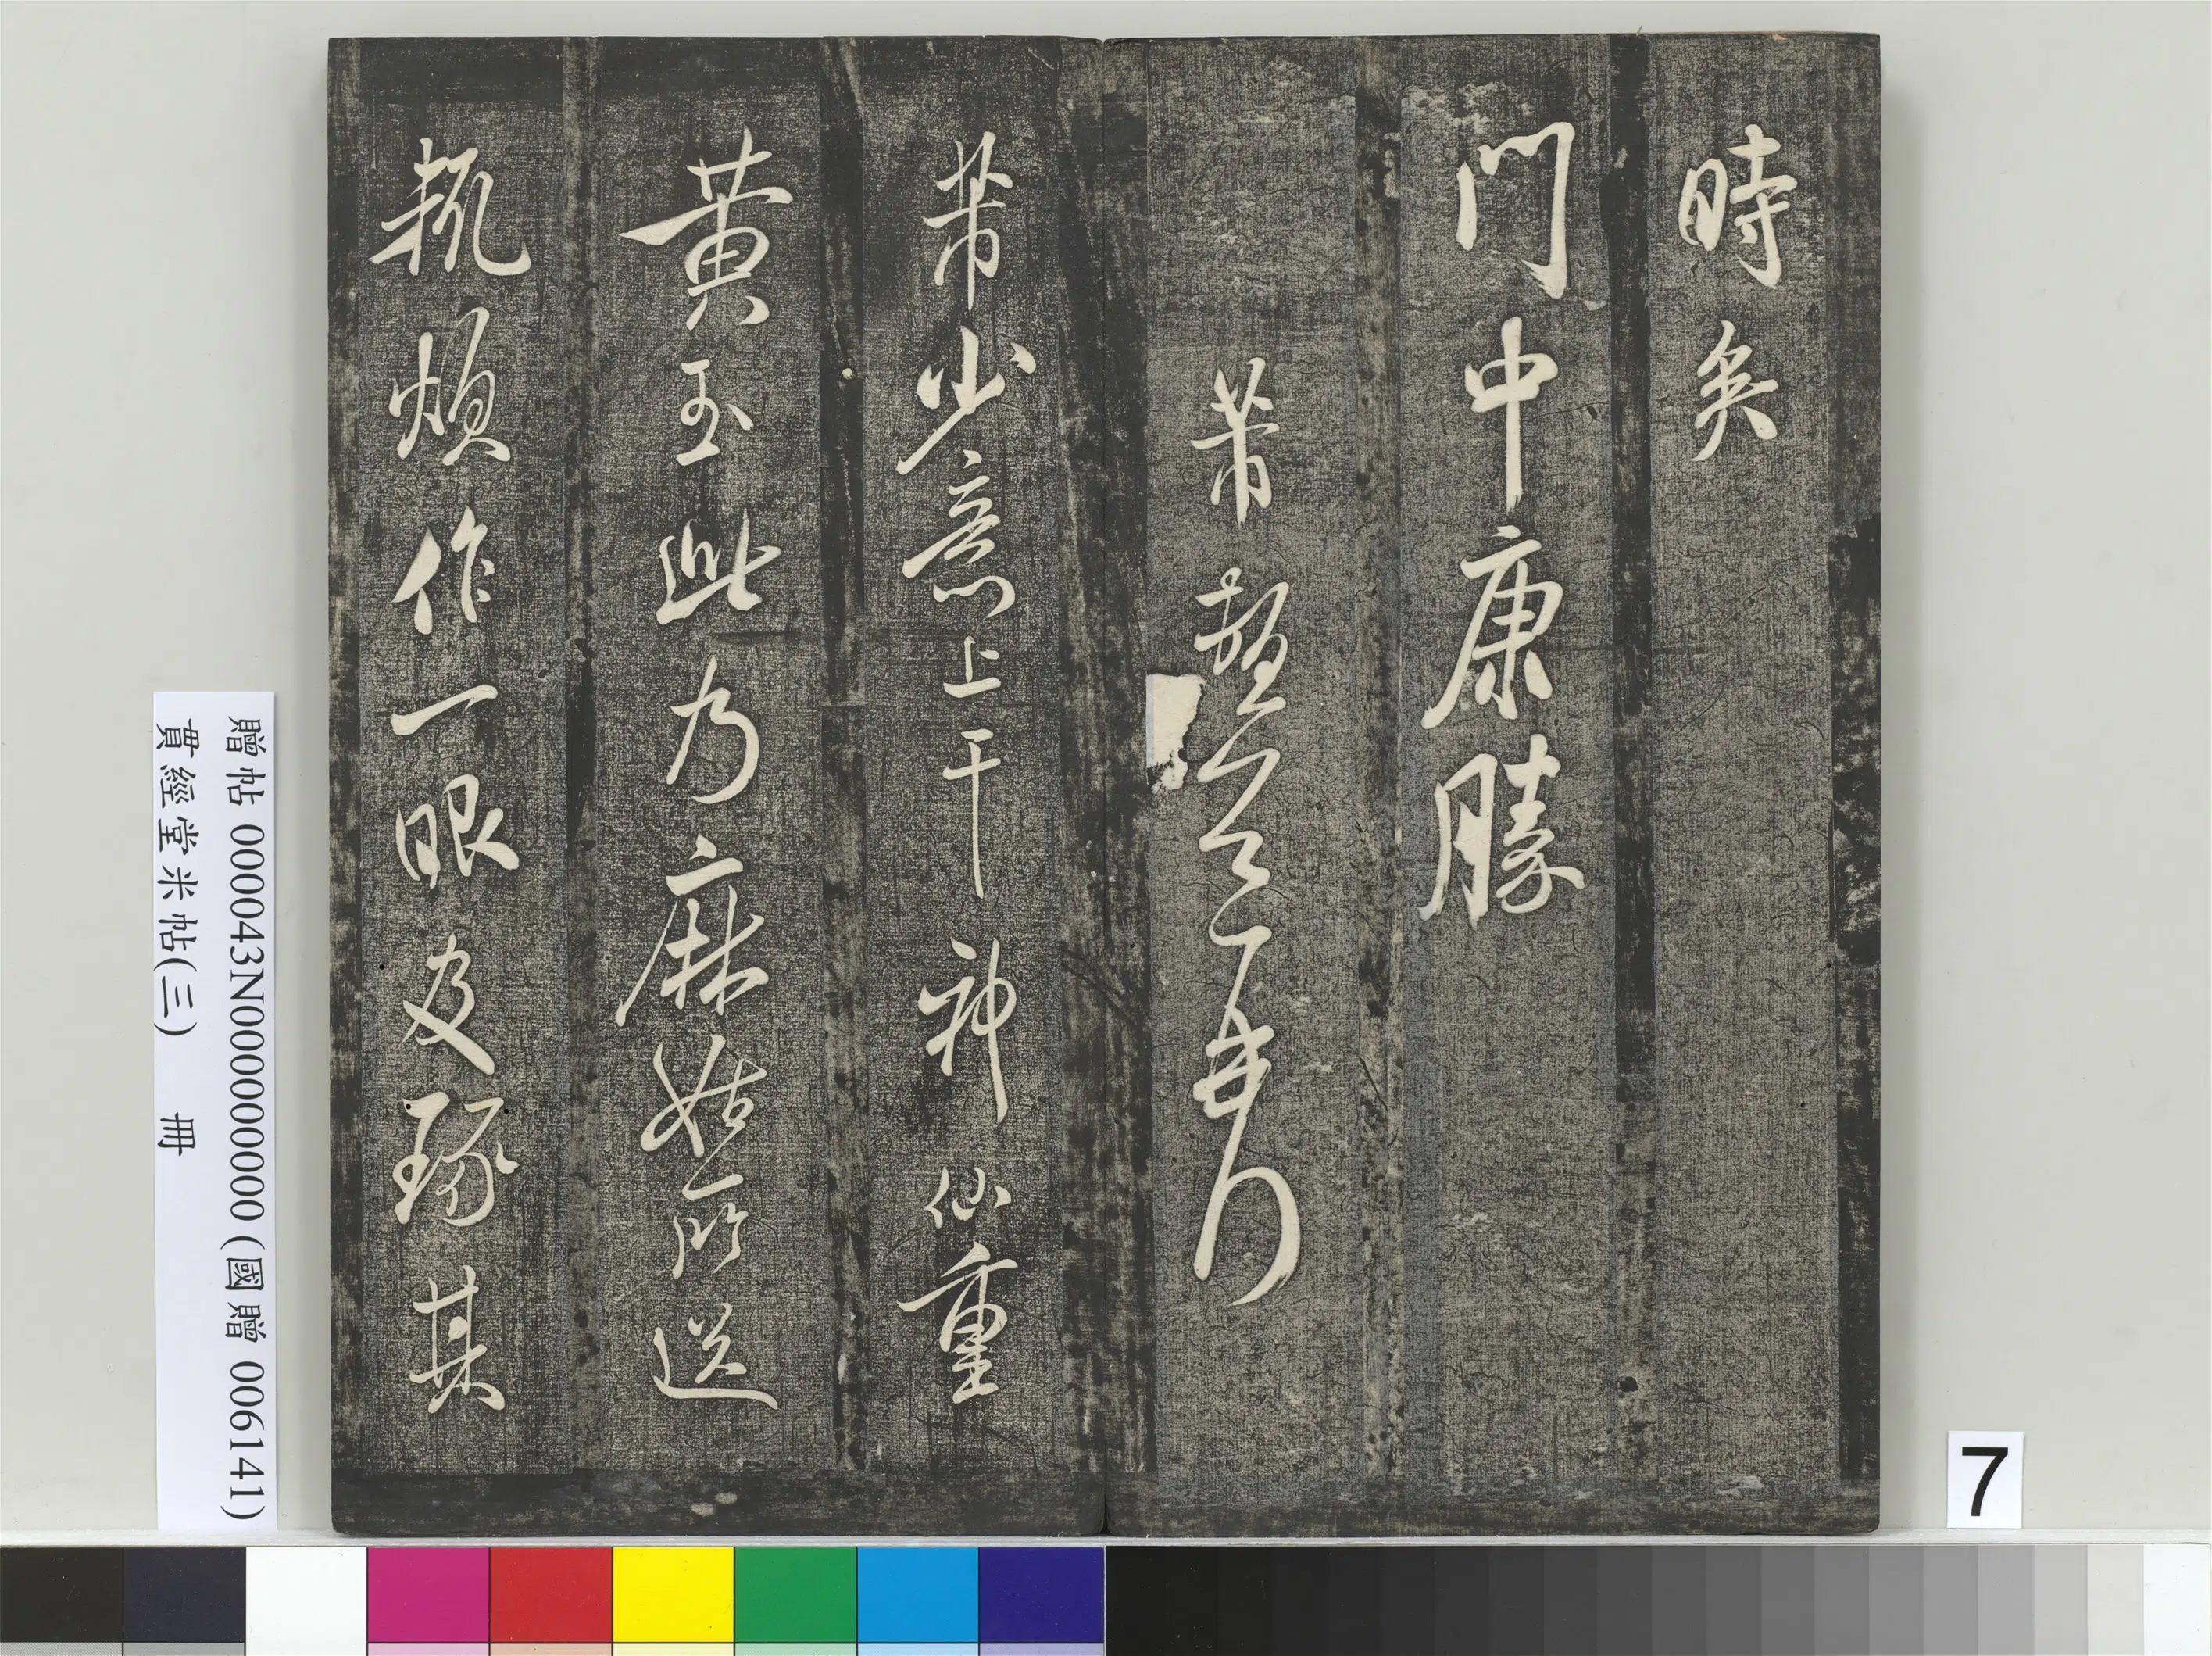 時矣
門中康勝
芾
芾少意上干神仙重
黃玉此乃麻姑所送
輒煩作一眼及琢其
贈帖 000043N000000000 (國贈 006141)
貫經堂米帖(三) 冊
7